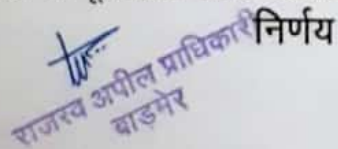 निर्णय
राजस्व अपील प्राधिकारी
बाड़मेर